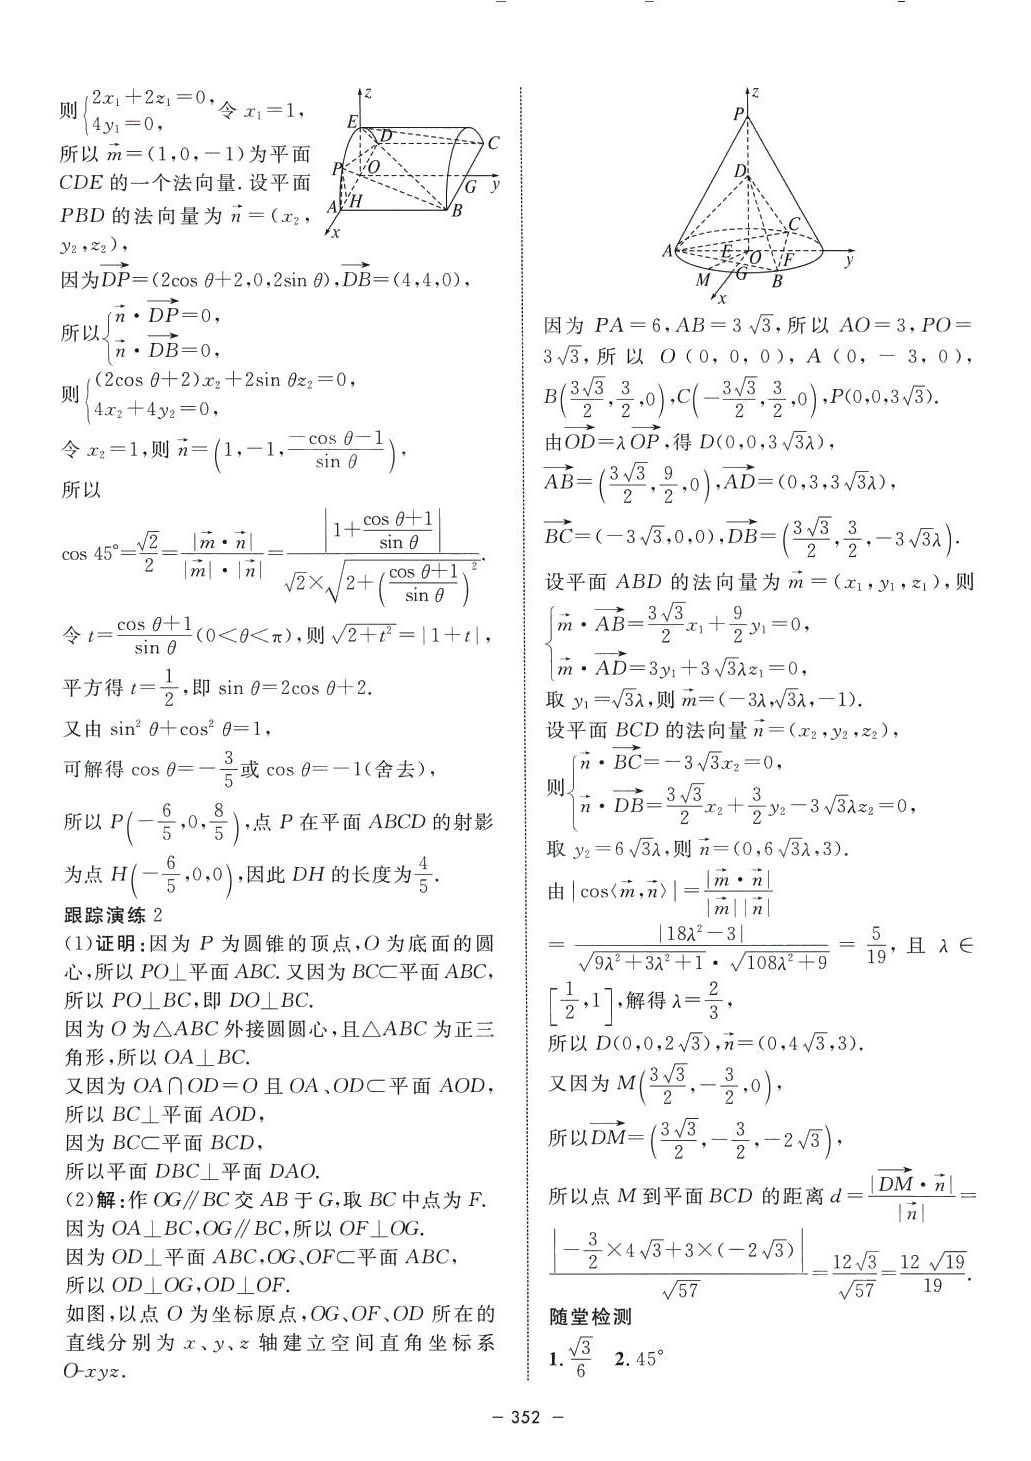 则{2x₁+2z₁=0, 4y₁=0, 令 x₁=1,
所以 m⃗=(1,0,-1)为平面
CDE 的一个法向量. 设平面
PBD 的法向量为 n⃗=(x₂,
y₂,z₂),
z E D C P O G y A H B x
因为DP⃗=(2cos θ+2,0,2sin θ),DB⃗=(4,4,0),
所以{n⃗·DP⃗=0, n⃗·DB⃗=0,
则{(2cos θ+2)x₂+2sin θz₂=0, 4x₂+4y₂=0,
令 x₂=1,则 n⃗=(1,-1,(-cos θ-1)/(sin θ)),
所以
cos 45°=√2/2=|m⃗·n⃗|/(|m⃗|·|n⃗|)=|1+(cos θ+1)/(sin θ)|/(√2×√(2+((cos θ+1)/(sin θ))²)).
令 t=(cos θ+1)/(sin θ)(0<θ<π),则 √(2+t²)=|1+t|,
平方得 t=1/2,即 sin θ=2cos θ+2.
又由 sin² θ+cos² θ=1,
可解得 cos θ=-3/5或 cos θ=-1(舍去),
所以 P(-6/5,0,8/5),点 P 在平面 ABCD 的射影
为点 H(-6/5,0,0),因此 DH 的长度为4/5.
跟踪演练 2
(1)证明:因为 P 为圆锥的顶点,O 为底面的圆
心,所以 PO⊥平面 ABC. 又因为 BC⊂平面 ABC,
所以 PO⊥BC,即 DO⊥BC.
因为 O 为△ABC 外接圆圆心,且△ABC 为正三
角形,所以 OA⊥BC.
又因为 OA∩OD=O 且 OA、OD⊂平面 AOD,
所以 BC⊥平面 AOD,
因为 BC⊂平面 BCD,
所以平面 DBC⊥平面 DAO.
(2)解:作 OG∥BC 交 AB 于 G,取 BC 中点为 F.
因为 OA⊥BC,OG∥BC,所以 OF⊥OG.
因为 OD⊥平面 ABC,OG、OF⊂平面 ABC,
所以 OD⊥OG,OD⊥OF.
如图,以点 O 为坐标原点,OG、OF、OD 所在的
直线分别为 x、y、z 轴建立空间直角坐标系
O-xyz.
z P D C A E O F y M G B x
因为 PA=6,AB=3√3,所以 AO=3,PO=
3√3,所以 O(0,0,0),A(0,-3,0),
B(3√3/2,3/2,0),C(-3√3/2,3/2,0),P(0,0,3√3).
由OD⃗=λOP⃗,得 D(0,0,3√3λ),
AB⃗=(3√3/2,9/2,0),AD⃗=(0,3,3√3λ),
BC⃗=(-3√3,0,0),DB⃗=(3√3/2,3/2,-3√3λ).
设平面 ABD 的法向量为 m⃗=(x₁,y₁,z₁),则
{m⃗·AB⃗=3√3/2x₁+9/2y₁=0,
m⃗·AD⃗=3y₁+3√3λz₁=0,
取 y₁=√3λ,则 m⃗=(-3λ,√3λ,-1).
设平面 BCD 的法向量 n⃗=(x₂,y₂,z₂),
则{n⃗·BC⃗=-3√3x₂=0,
n⃗·DB⃗=3√3/2x₂+3/2y₂-3√3λz₂=0,
取 y₂=6√3λ,则 n⃗=(0,6√3λ,3).
由|cos⟨m⃗,n⃗⟩|=|m⃗·n⃗|/(|m⃗||n⃗|)
=|18λ²-3|/(√(9λ²+3λ²+1)·√(108λ²+9))=5/19,且 λ∈
[1/2,1],解得 λ=2/3,
所以 D(0,0,2√3),n⃗=(0,4√3,3).
又因为 M(3√3/2,-3/2,0),
所以DM⃗=(3√3/2,-3/2,-2√3),
所以点 M 到平面 BCD 的距离 d=|DM⃗·n⃗|/|n⃗|=
|-3/2×4√3+3×(-2√3)|/√57=12√3/√57=12√19/19.
随堂检测
1. √3/6 2. 45°
– 352 –